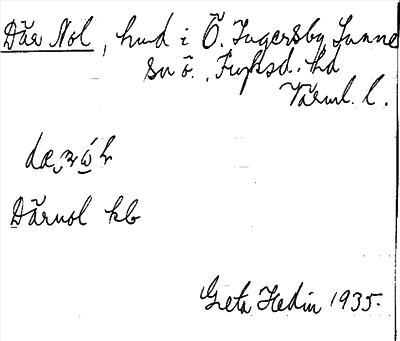 Där Nol, hmd i Ö. Ingersby, Sunne
sn o., Fryksd. hd
Värml. l.
Därnol kb
Greta Hedin 1935.